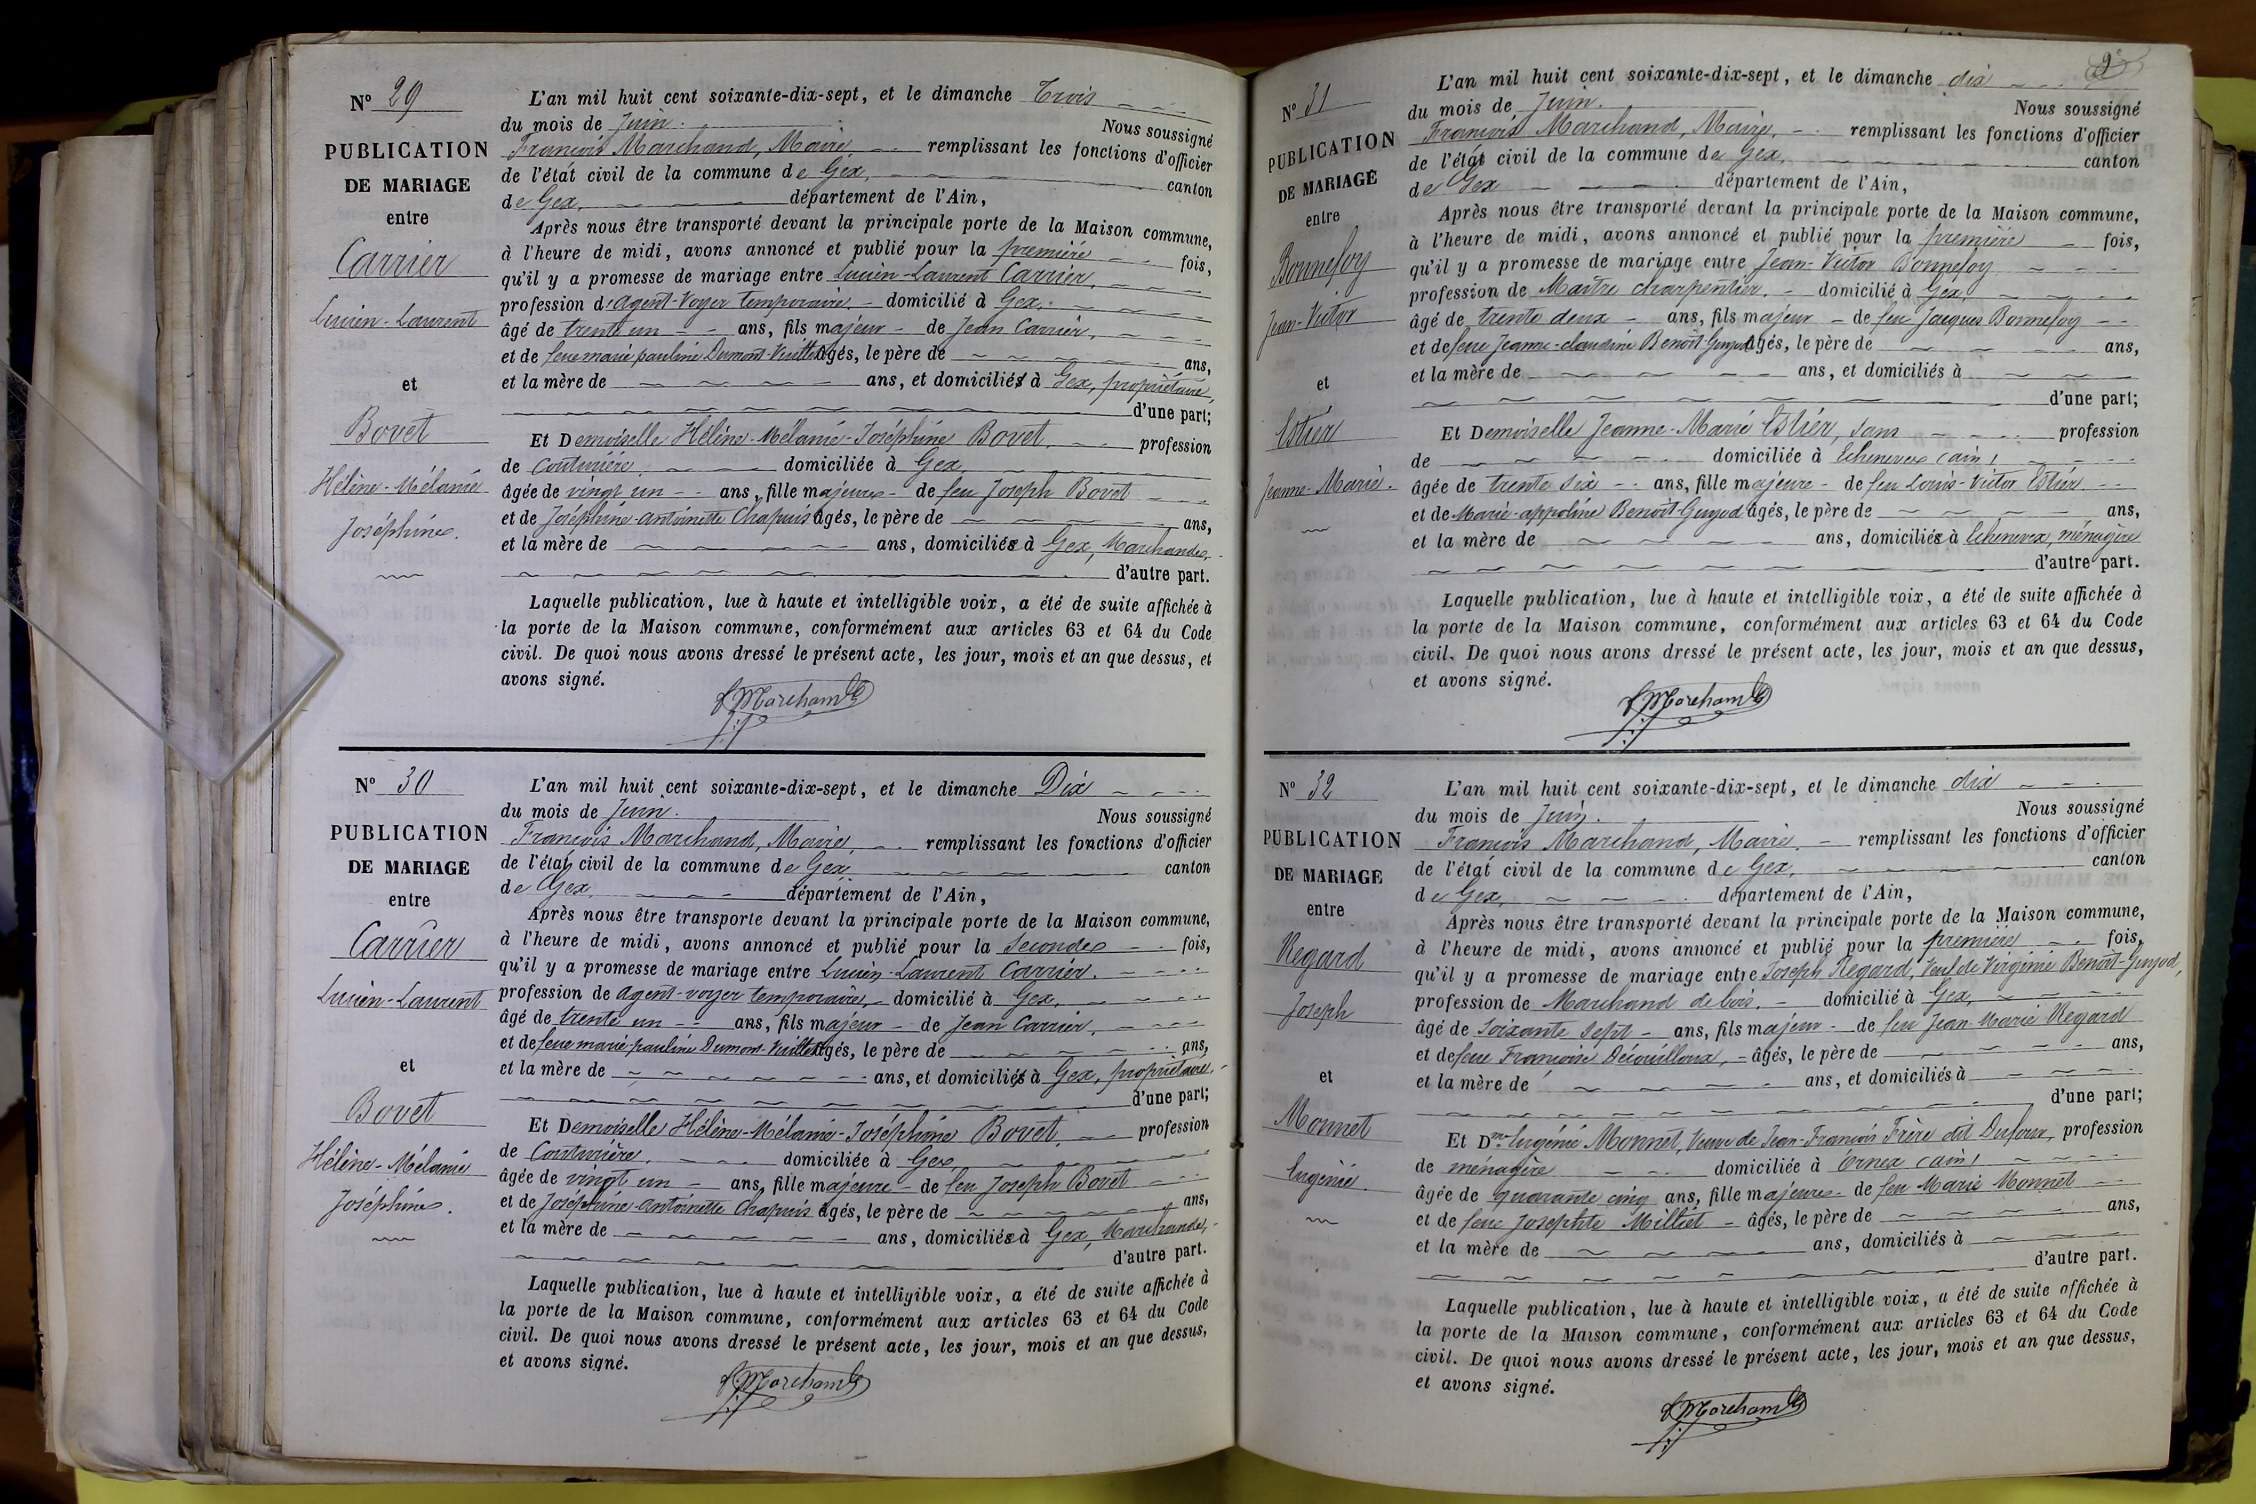 N° 29
PUBLICATION
DE MARIAGE
entre
Carrier
Lucien-Laurent
et
Bovet
Hélène-Mélanie
Joséphine.
L'an mil huit cent soixante-dix-sept, et le dimanche Trois
du mois de Juin. Nous soussigné
François Marchand, Maire, remplissant les fonctions d'officier
de l'état civil de la commune de Gex, canton
de Gex, département de l'Ain,
Après nous être transporté devant la principale porte de la Maison commune,
à l'heure de midi, avons annoncé et publié pour la première fois,
qu'il y a promesse de mariage entre Lucien-Laurent Carrier,
profession d'agent-voyer temporaire, domicilié à Gex,
âgé de trente un ans, fils majeur de Jean Carrier,
et de feue marie pauline Dumont-Vuillet âgés, le père de ans,
et la mère de ans, et domiciliés à Gex, propriétaire,
d'une part;
Et Demoiselle Hélène-Mélanie-Joséphine Bovet, profession
de Couturière, domiciliée à Gex,
âgée de vingt un ans, fille majeure de feu Joseph Bovet
et de Joséphine-antoinette Chapuis âgés, le père de ans,
et la mère de ans, domiciliés à Gex, Marchande,
d'autre part.
Laquelle publication, lue à haute et intelligible voix, a été de suite affichée à
la porte de la Maison commune, conformément aux articles 63 et 64 du Code
civil. De quoi nous avons dressé le présent acte, les jour, mois et an que dessus, et
avons signé.
F Marchand
N° 30
PUBLICATION
DE MARIAGE
entre
Carrier
Lucien-Laurent
et
Bovet
Hélène-Mélanie
Joséphine.
L'an mil huit cent soixante-dix-sept, et le dimanche Dix
du mois de Juin. Nous soussigné
François Marchand, Maire, remplissant les fonctions d'officier
de l'état civil de la commune de Gex, canton
de Gex, département de l'Ain,
Après nous être transporté devant la principale porte de la Maison commune,
à l'heure de midi, avons annoncé et publié pour la seconde fois,
qu'il y a promesse de mariage entre Lucien-Laurent Carrier,
profession de agent-voyer temporaire, domicilié à Gex,
âgé de trente un ans, fils majeur de Jean Carrier,
et de feue marie-pauline Dumont-Vuillet âgés, le père de ans,
et la mère de ans, et domiciliés à Gex, propriétaire,
d'une part;
Et Demoiselle Hélène-Mélanie-Joséphine Bovet, profession
de Couturière, domiciliée à Gex
âgée de vingt un ans, fille majeure de feu Joseph Bovet
et de Joséphine-antoinette Chapuis âgés, le père de ans,
et la mère de ans, domiciliés à Gex, Marchande,
d'autre part.
Laquelle publication, lue à haute et intelligible voix, a été de suite affichée à
la porte de la Maison commune, conformément aux articles 63 et 64 du Code
civil. De quoi nous avons dressé le présent acte, les jour, mois et an que dessus,
et avons signé.
F Marchand
N° 31
PUBLICATION
DE MARIAGE
entre
Bonnefoy
Jean-Victor
et
Estier
Jeanne-Marie.
L'an mil huit cent soixante-dix-sept, et le dimanche dix
du mois de Juin. Nous soussigné
François Marchand, Maire, remplissant les fonctions d'officier
de l'état civil de la commune de Gex, canton
de Gex département de l'Ain,
Après nous être transporté devant la principale porte de la Maison commune,
à l'heure de midi, avons annoncé et publié pour la première fois,
qu'il y a promesse de mariage entre Jean-Victor Bonnefoy
profession de Maître charpentier, domicilié à Gex,
âgé de trente deux ans, fils majeur de feu Jacques Bonnefoy
et de feue Jeanne-claudine Benoit-Guyod âgés, le père de ans,
et la mère de ans, et domiciliés à
d'une part;
Et Demoiselle Jeanne-Marie Estier, sans profession
de domiciliée à Echenevex (ain)
âgée de trente six ans, fille majeure de feu Louis-Victor Estier
et de Marie-appoline Benoit-Guyod âgés, le père de ans,
et la mère de ans, domiciliés à Echenevex, ménagère
d'autre part.
Laquelle publication, lue à haute et intelligible voix, a été de suite affichée à
la porte de la Maison commune, conformément aux articles 63 et 64 du Code
civil. De quoi nous avons dressé le présent acte, les jour, mois et an que dessus,
et avons signé.
F Marchand
N° 32
PUBLICATION
DE MARIAGE
entre
Regard
Joseph
et
Monnet
Eugénie.
L'an mil huit cent soixante-dix-sept, et le dimanche dix
du mois de Juin. Nous soussigné
François Marchand, Maire, remplissant les fonctions d'officier
de l'état civil de la commune de Gex, canton
de Gex, département de l'Ain,
Après nous être transporté devant la principale porte de la Maison commune,
à l'heure de midi, avons annoncé et publié pour la première fois,
qu'il y a promesse de mariage entre Joseph Regard, Veuf de Virginie Benoit-Guyod,
profession de Marchand de bois, domicilié à Gex,
âgé de soixante sept ans, fils majeur de feu Jean-Marie Regard
et de feue Françoise Décuilloux, âgés, le père de ans,
et la mère de ans, et domiciliés à
d'une part;
Et Dme Eugénie Monnet, Veuve de Jean-François Frère dit Dufour, profession
de ménagère domiciliée à Ornex (ain)
âgée de quarante cinq ans, fille majeure de feu Marie Monnet
et de feue Josephte Milliet âgés, le père de ans,
et la mère de ans, domiciliés à
d'autre part.
Laquelle publication, lue à haute et intelligible voix, a été de suite affichée à
la porte de la Maison commune, conformément aux articles 63 et 64 du Code
civil. De quoi nous avons dressé le présent acte, les jour, mois et an que dessus,
et avons signé.
F Marchand